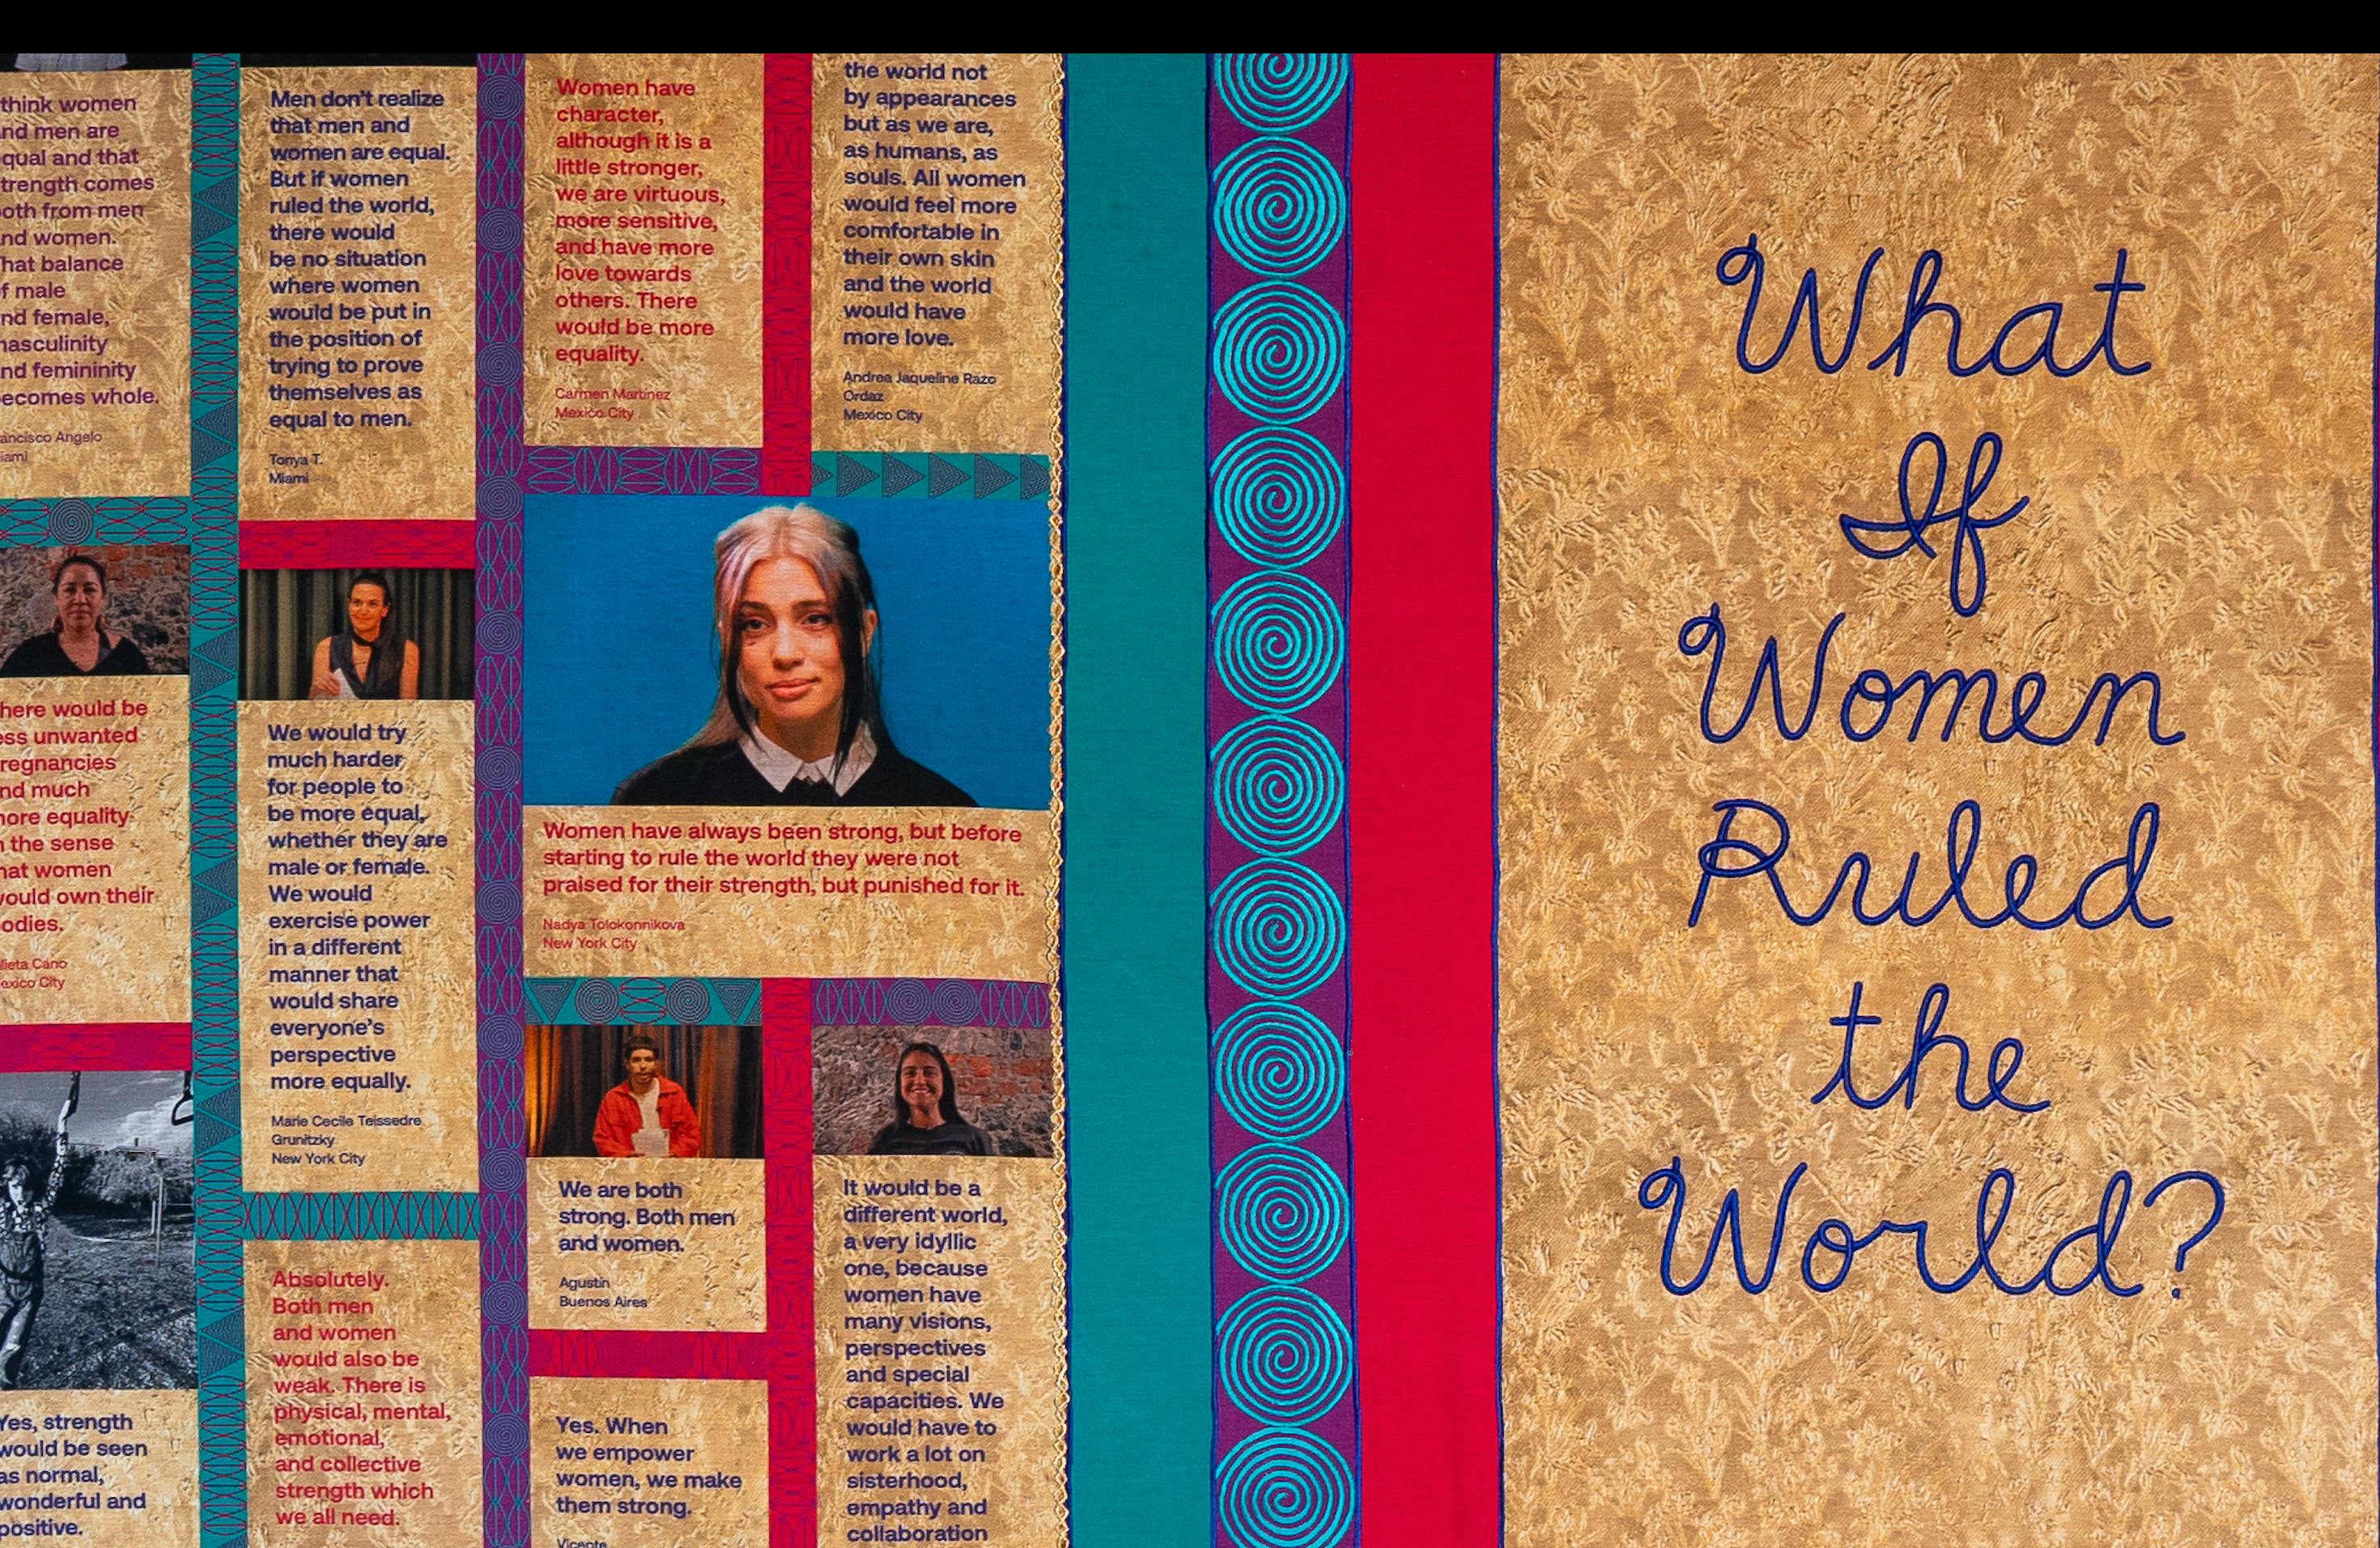 think women
nd men are
qual and that
trength comes
oth from men
nd women.
hat balance
f male
nd female,
nasculinity
nd femininity
ecomes whole.
ancisco Angelo
iami
here would be
ess unwanted
regnancies
nd much
nore equality
n the sense
hat women
vould own their
odies.
lieta Cano
exico City
Yes, strength
would be seen
as normal,
wonderful and
positive.
Men don't realize
that men and
women are equal.
But if women
ruled the world,
there would
be no situation
where women
would be put in
the position of
trying to prove
themselves as
equal to men.
Tonya T.
Miami
We would try
much harder
for people to
be more equal,
whether they are
male or female.
We would
exercise power
in a different
manner that
would share
everyone's
perspective
more equally.
Marie Cecile Teissedre
Grunitzky
New York City
Absolutely.
Both men
and women
would also be
weak. There is
physical, mental,
emotional,
and collective
strength which
we all need.
Women have
character,
although it is a
little stronger,
we are virtuous,
more sensitive,
and have more
love towards
others. There
would be more
equality.
Carmen Martinez
Mexico City
the world not
by appearances
but as we are,
as humans, as
souls. All women
would feel more
comfortable in
their own skin
and the world
would have
more love.
Andrea Jaqueline Razo
Ordaz
Mexico City
Women have always been strong, but before
starting to rule the world they were not
praised for their strength, but punished for it.
Nadya Tolokonnikova
New York City
We are both
strong. Both men
and women.
Agustin
Buenos Aires
Yes. When
we empower
women, we make
them strong.
Vicente
It would be a
different world,
a very idyllic
one, because
women have
many visions,
perspectives
and special
capacities. We
would have to
work a lot on
sisterhood,
empathy and
collaboration
What
If
Women
Ruled
the
World?